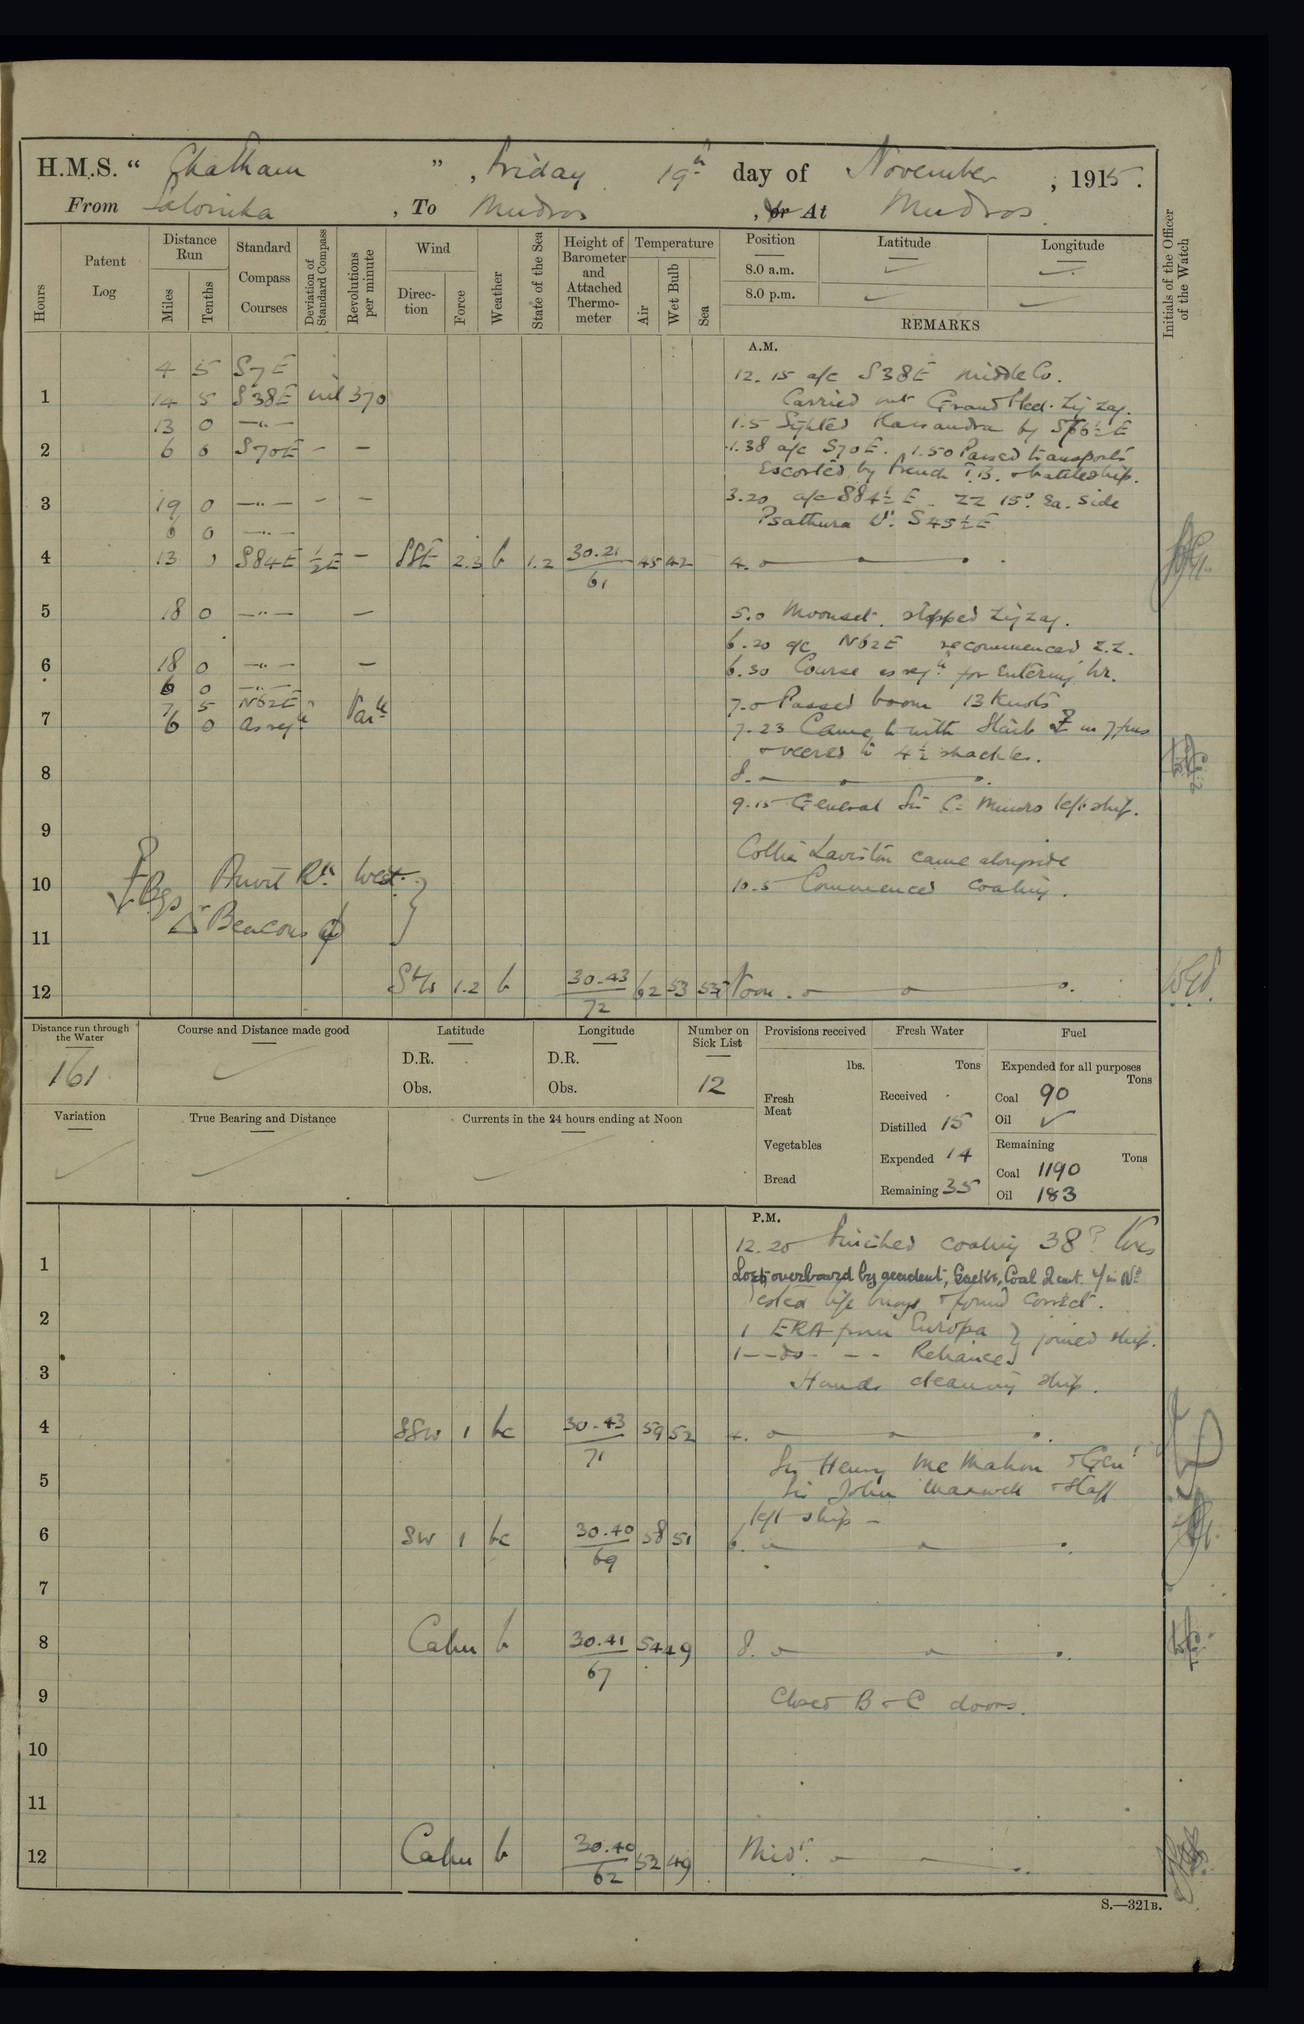 H.M.S. " Chatham ", Friday 19th day of November, 1915.
From Salonika, To Mudros, or At Mudros.
Initials of the Officer of the Watch
Hours
Patent Log
Distance Run
Miles
Tenths
Standard Compass Courses
Deviation of Standard Compass
Revolutions per minute
Wind
Direction
Force
Weather
State of the Sea
Height of Barometer and Attached Thermometer
Temperature
Air
Wet Bulb
Sea
Position
Latitude
Longitude
8.0 a.m.
8.0 p.m.
REMARKS
A.M.
4 5 S7E
12.15 a/c S38E middle Co.
1 14 5 S38E nil 370
Carried out Zig zag.
13 0 —"—
1.5 Sighted Kassandra by S66½E
2 6 0 S70E - -
1.38 a/c S70E. 1.50 Passed transports
Escorted by French T.B. & battleship.
3 19 0 —"— - -
3.20 a/c S84½E ZZ 15° Ea. side
6 0 —"—
Psathura Lt. S45½E
4 13 S84E ½E - SSE 2.3 b 1.2 30.21 61 45 42
4.
5 18 0 —"— -
5.0 Moonset. stopped zig zag.
6.20 a/c N62E recommenced Z.Z.
6 18 0 —"— -
6.30 Course as reqd. for entering hr.
6 0 —"—
7 5 N62E
7.0 Passed boom 13 Knots
7 6 0 as reqd. Varble
7.23 Came to with Starb in 7 fms
& veered to 4½ shackles.
8
8.
9.15 General Sir C. Munro left ship.
9
Collier Laviston came alongside
10 Bgs Anvil Rk West
10.5 Commenced coaling.
Beacons
11
12 1.2 b 30.43 72 62 53 53 Noon.
Distance run through the Water
161
Course and Distance made good
Latitude
D.R.
Obs.
Longitude
D.R.
Obs.
Number on Sick List
12
Variation
True Bearing and Distance
Currents in the 24 hours ending at Noon
Provisions received
lbs.
Fresh Meat
Vegetables
Bread
Fresh Water
Tons
Received
Distilled 15
Expended 14
Remaining 35
Fuel
Expended for all purposes
Tons
Coal 90
Oil
Remaining
Tons
Coal 1190
Oil 183
P.M.
12.20 Finished coaling tons
1
Lost overboard by accident, Sacks, Coal 2 cwt. in No
Tested life buoys & found correct.
2
1 ERA from Europa } joined ship.
1 - - do - - - Reliance
3
Hands cleaning ship.
4 SSW 1 bc 30.43 71 59 52
4.
Sir Henry McMahon & Genl
5
Sir John Maxwell & Staff
left ship -
6 SW 1 bc 30.40 69 58 51
6.
7
8 Calm b 30.41 67 54 49
8.
9
Closed B & C doors.
10
11
12 Calm b 30.40 62 52 49
Midt.
S.—321B.